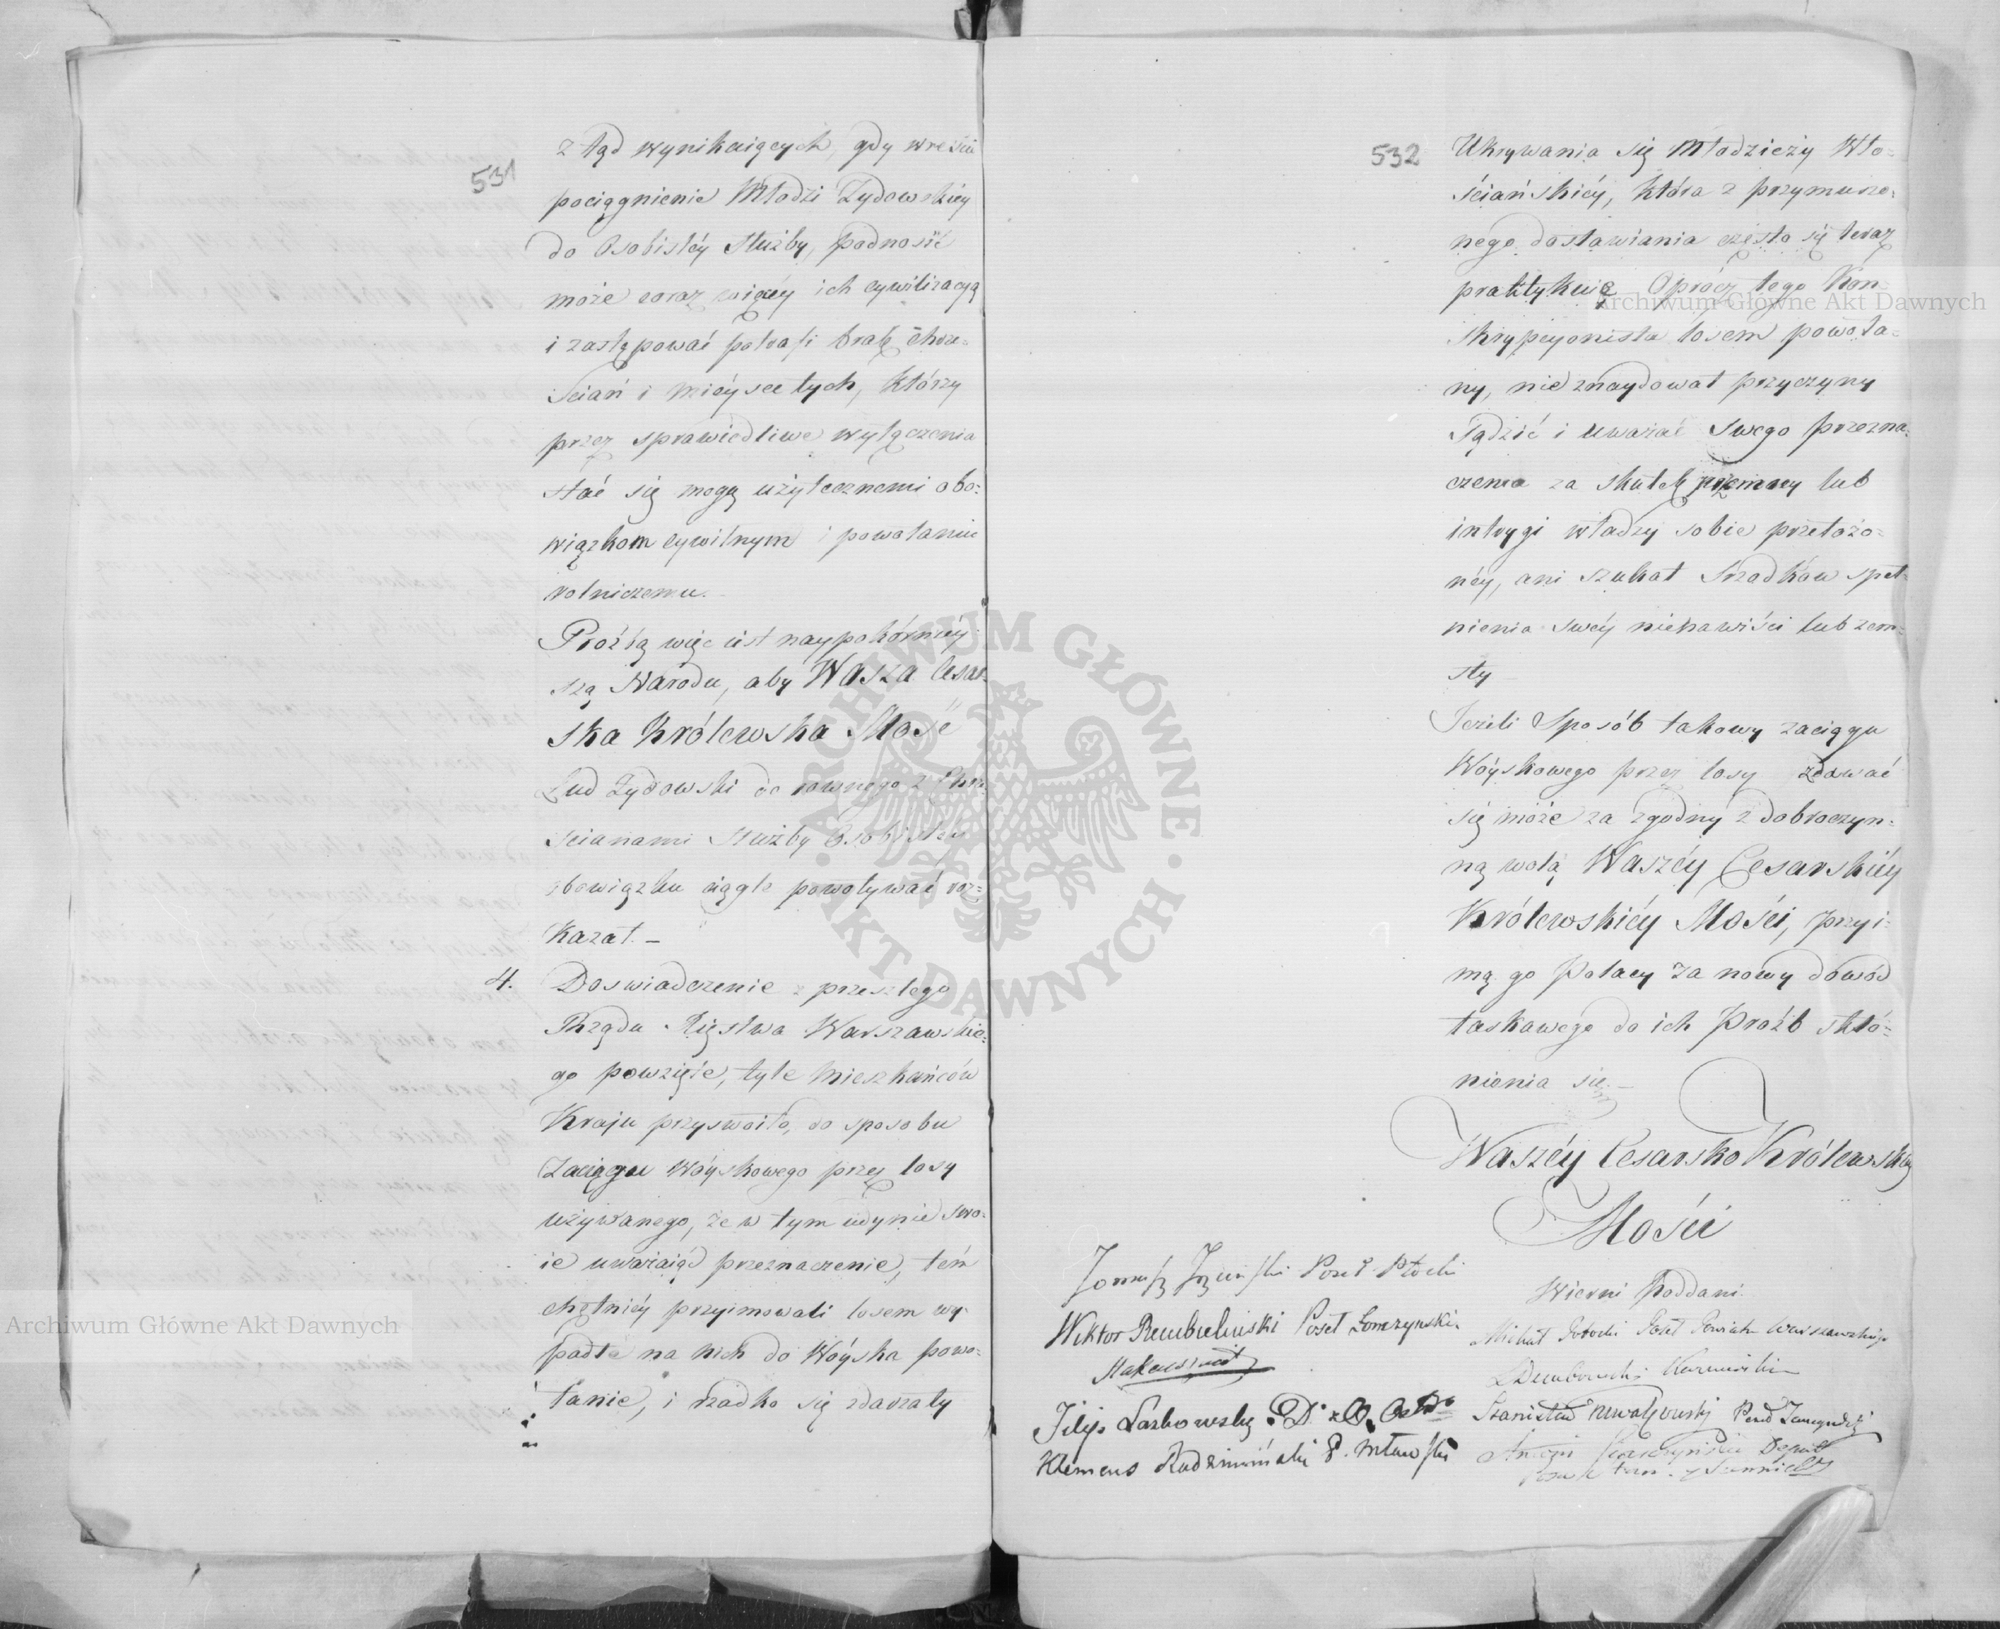 531
ztąd wynikaiących, gdy wreście
pociągnienie Młodzi Żydowskiéy
do Osobistéy Służby, podnosić
może coraz więcéy ich cywilizacyą
i zastępować potrafi brak Chrze-
ścian i mieysce tych, którzy
przez sprawiedliwe wyłączenia
stać się mogą użytecznemi obo-
wiązkom cywilnym i powołaniu
rolniczemu.
Proźbą więc iest naypokórniéy-
szą Narodu, aby Wasza Cesar-
ska Królewska Mość
Lud Żydowski do równego z Chrze-
ścianami Służby Osobistey
obowiązku ciągle powoływać roz-
kazał. —
4. Doswiadczenie z przeszłego
Rządu Xięstwa Warszawskie-
go powzięte, tyle Mieszkańców
Kraju przyswoiło, do sposobu
Zaciągu Wóyskowego przez losy
używanego, że w tym iedynie swo-
ie uważaiąc przeznaczenie, tém
chętniéy przyimowali losem wy-
padłe na nich do Wóyska powo-
łanie, i rzadko się zdarzały
532
Ukrywania się Młodzieży Wło-
ściańskiéy, która z przymuszo-
nego dostawiania często się teraz
praktykuie Oprócz tego Kon-
skrypcyonista losem powoła-
ny, nie znaydował przyczyny
Sądzić i uważać Swego przezna-
czenia za skutek przemocy lub
intrygi władzy sobie przełożo-
néy, ani szukał srzodków speł-
nienia swéy nienawiści lub zem-
sty
Jeżeli Sposób takowy zaciągu
Wóyskowego przez losy zdawać
się może za zgodny z dobroczyn-
ną wolą Waszéy Cesarskiéy
Królewskiéy Mości, przyi-
mą go Polacy za nowy dowód
łaskawego do ich Próźb skło-
nienia się. —
Waszéy Cesarsko Królewskiéy
Mości
Wierni Poddani.
Poseł Płocki
Wiktor Rembieliński Poseł Łomżyński
Michał Potocki Poseł Powiatu Warszawskiego
Stanisław
Klemens Radzimiński P. Mławski
Antoni
Archiwum Główne Akt Dawnych
Archiwum Główne Akt Dawnych
ARCHIWUM GŁÓWNE · AKT DAWNYCH ·